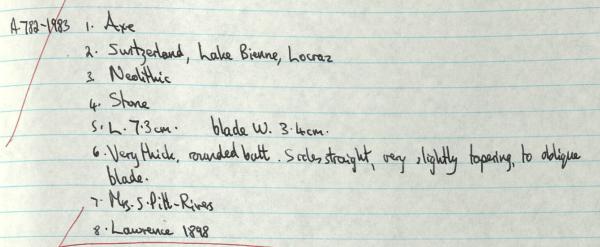 A·782-1983 1. Axe
2. Switzerland, Lake Bienne, Locraz
3. Neolithic
4. Stone
5. L. 7.3cm. blade W. 3.4cm.
6. Very thick, rounded butt. Sides straight, very slightly tapering, to oblique
blade.
7. Mrs. S. Pitt-Rivers
8. Lawrence 1898